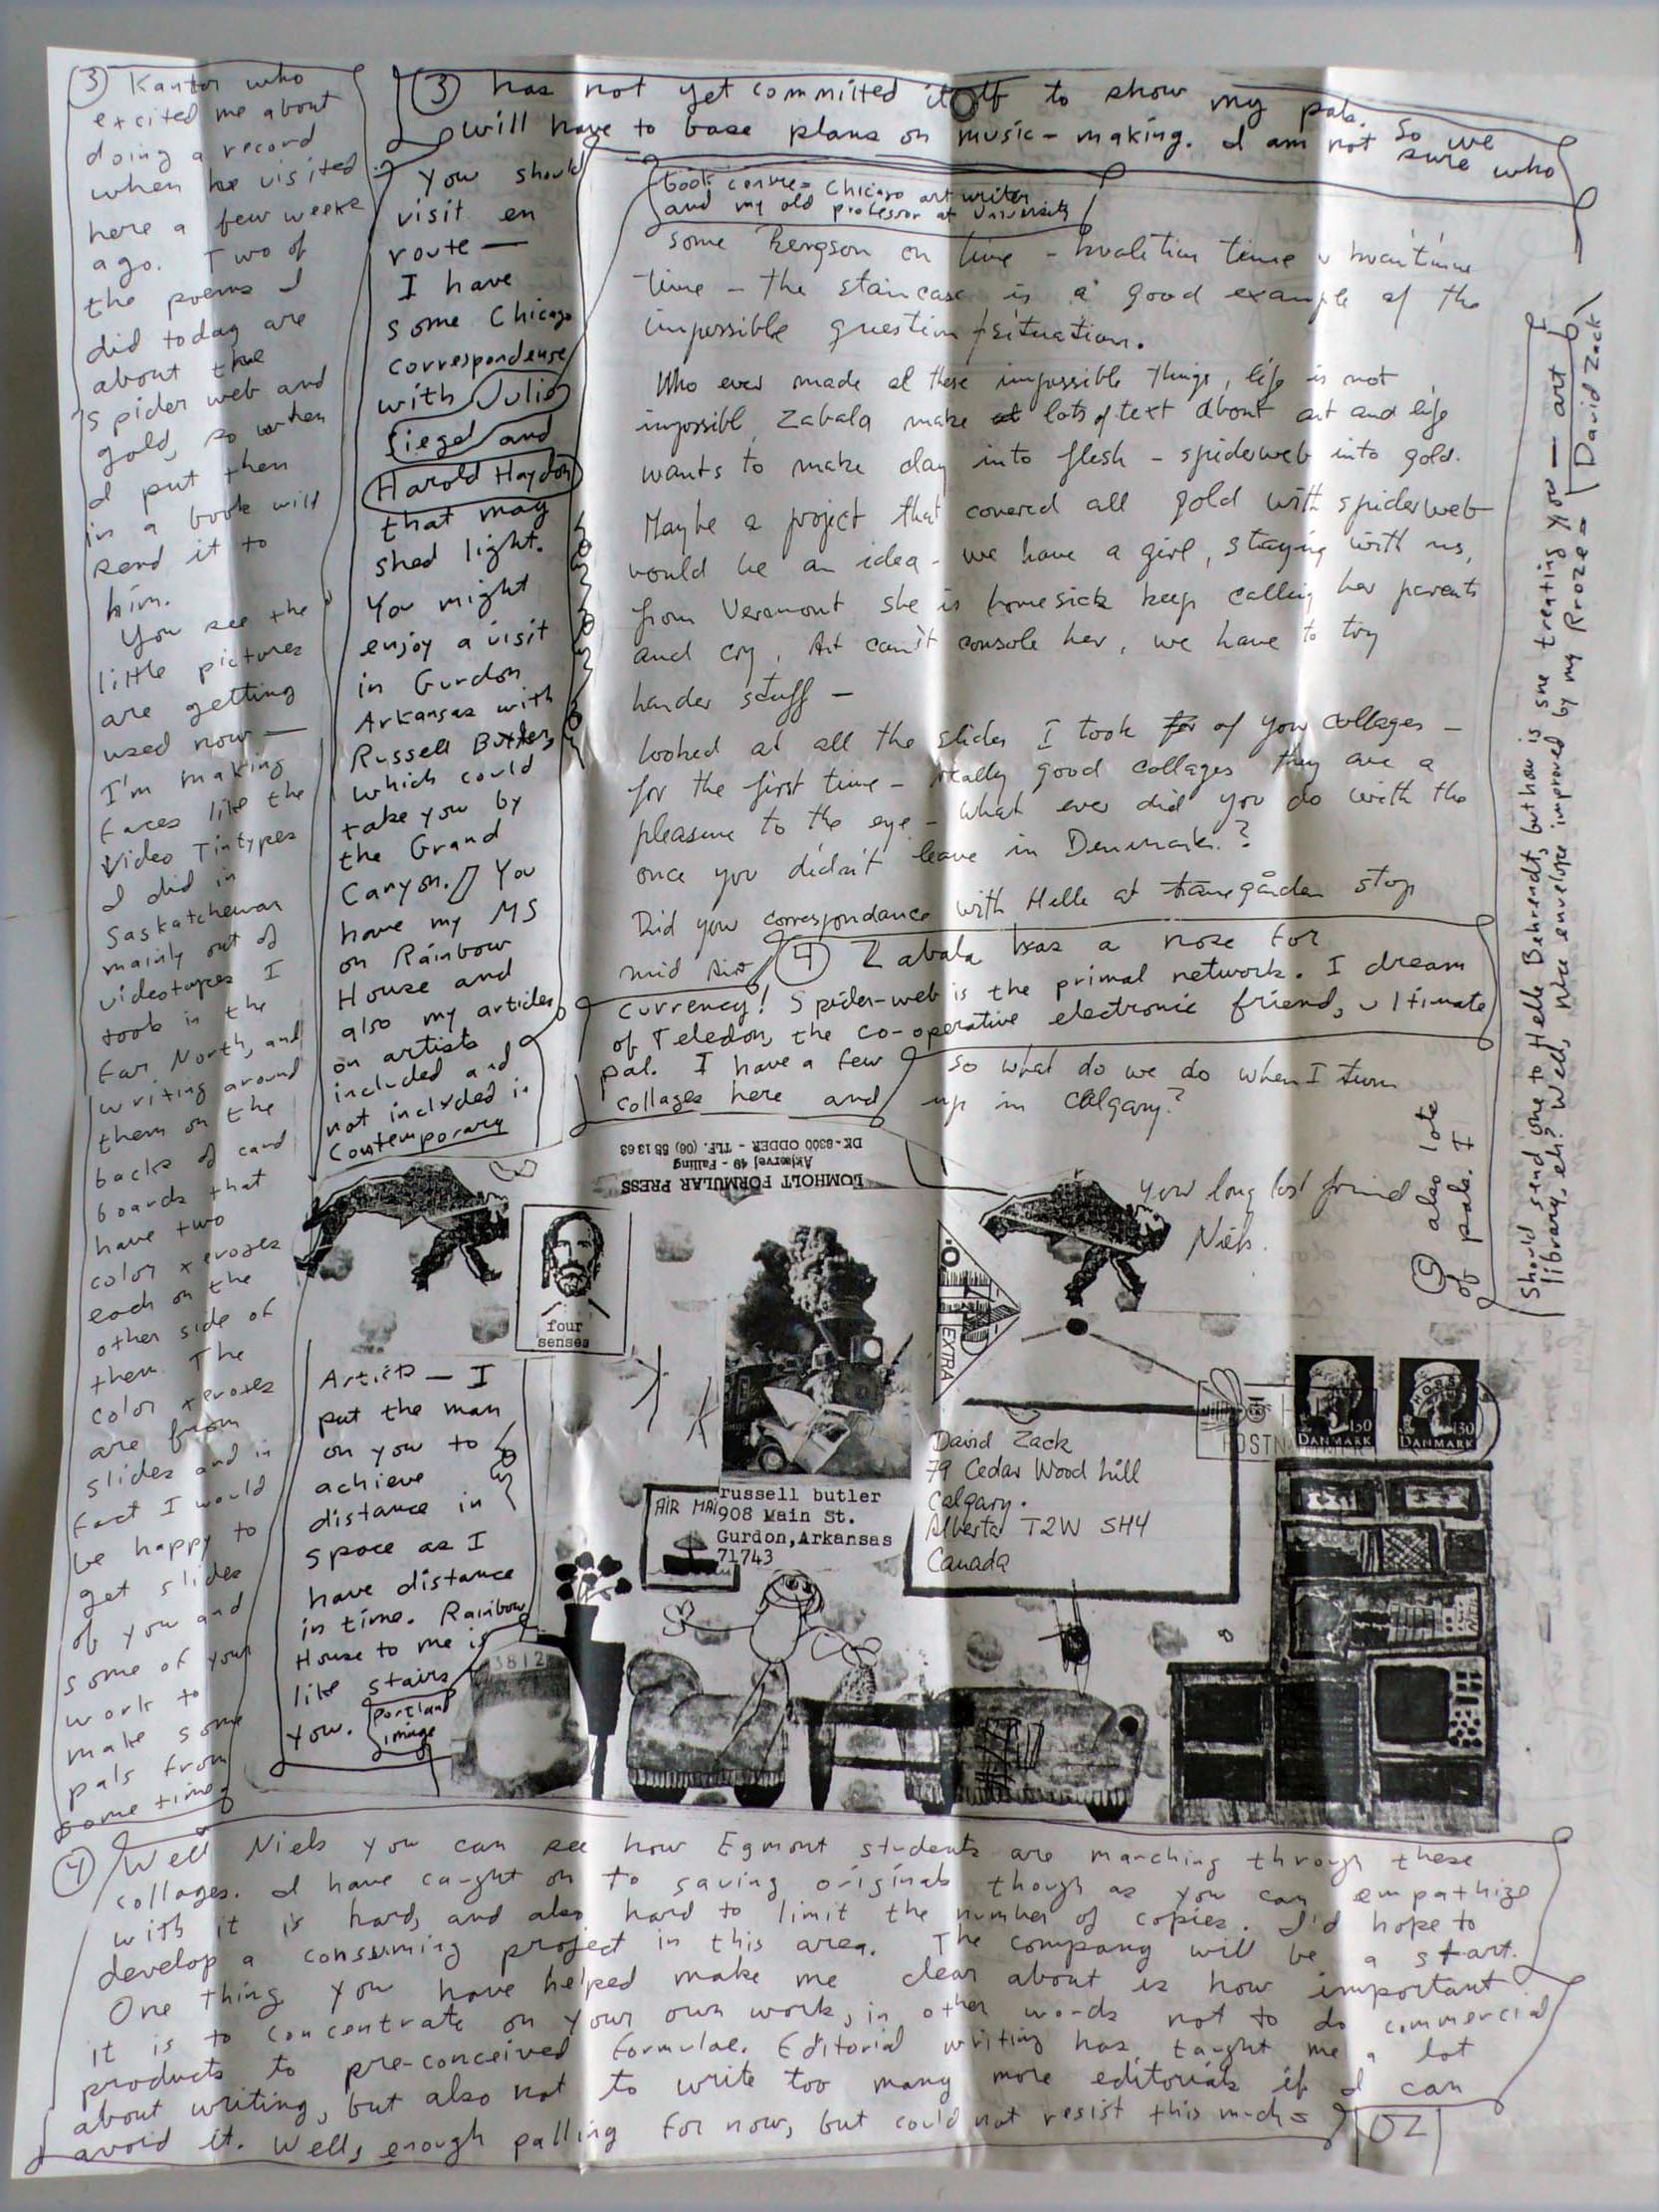 ③ Kantor who
excited me about
doing a record
when he visited
here a few weeks
ago. Two of
the poems I
did today are
about the
spider web and
gold, so when
I put them
in a book will
send it to
him.
You see the
little pictures
are getting
used now —
I'm making
faces like the
Video Tintypes
I did in
Saskatchewan
mainly out of
videotapes I
took in the
Far North, and
writing around
them on the
backs of card
boards that
have two
color xeroxes
each on the
other side of
them. The
color xeroxes
are from
slides and in
fact I would
be happy to
get slides
of you and
some of your
work to
make some
pals from
some time,
③ has not yet committed itself to show my pals. So we
will have to base plans on music-making. I am not sure who
you should
visit en
route —
I have
some Chicago
correspondense
with Julie
Siegel and
Harold Haydon
that may
shed light.
You might
enjoy a visit
in Gurdon
Arkansas with
Russell Butler,
which could
take you by
the Grand
Canyon. You
have my MS
on Rainbow
House and
also my articles
on artists
included and
not included in
Contemporary
Artists — I
put the man
on you to
achieve
distance in
space as I
have distance
in time. Rainbow
House to me is
like stairs
you.
portland
image
both Chicago art writer
and my old professor at University
some Bergson on time -
time - the staircase is a good example of the
impossible question / situation.
Who ever made all these impossible things, life is not
impossibl, Zabala make lots of text about art and life
wants to make clay into flesh - spiderweb into gold.
Maybe a project that covered all gold with spiderweb
would be an idea - we have a girl, staying with us,
from Veramont she is homesick keep calling her parents
and cry, Art can't console her, we have to try
harder stuff —
looked at all the slides I took of your collages —
for the first time - really good collages they are a
pleasure to the eye - what ever did you do with the
once you didn't leave in Denmark.?
Did your correspondance with Helle at tranegården stop
mid Air
④ Zabala has a nose for
currency! Spider-web is the primal network. I dream
of Teledon, the co-operative electronic friend, ultimate
pal. I have a few
collages here and
so what do we do when I turn
up in calgary?
Your long lost friend
Niels.
also lots
of pals. I
should send one to Helle Behrendt, but how is she treating you — art
library, eh? Well, nice envelope improved by my Proze = David Zack
LOMHOLT FORMULAR PRESS
Akjærvej 49 - Falling
DK-8300 ODDER - TLF. (06) 55 13 63
four
senses
EXTRA
DANMARK
150
DANMARK
130
AIR MAI
russell butler
908 Main St.
Gurdon, Arkansas
71743
David Zack
79 Cedar Wood hill
Calgary.
Alberta T2W SH4
Canada
3812
④ Well Niels you can see how Egmont students are marching through these
collages. I have caught on to saving originals though as you can empathize
with it is hard, and also hard to limit the number of copies. I'd hope to
develop a consuming project in this area. The company will be a start.
One thing you have helped make me clear about is how important
it is to concentrate on your own work, in other words not to do commercial
products to pre-conceived formulae. Editorial writing has taught me a lot
about writing, but also not to write too many more editorials if I can
avoid it. Well, enough palling for now, but could not resist this much =
DZ